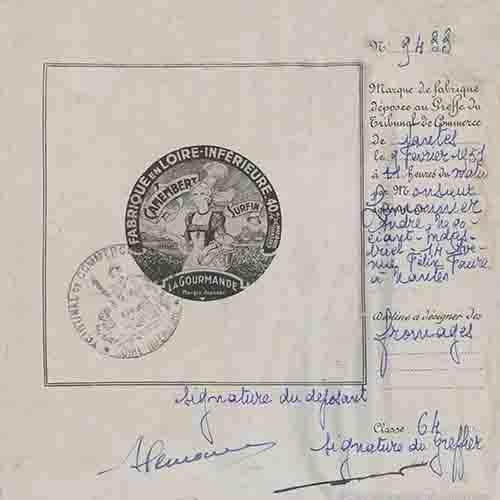 N° 9433
Marque de fabrique
déposée au Greffe du
Tribunal de Commerce
de Nantes
le 9 février 1951
à 11 heures du matin
par Monsieur
André Négo
ciant-Indus
triel - 14 Ave
nue Félix Faure
à Nantes
Destinée à désigner des
fromages
Classe 64
FABRIQUÉ EN LOIRE-INFÉRIEURE 40%
CAMEMBERT
SURFIN
LA GOURMANDE
Marque déposée
TRIBUNAL DE COMMERCE
signature du déposant
signature du greffier